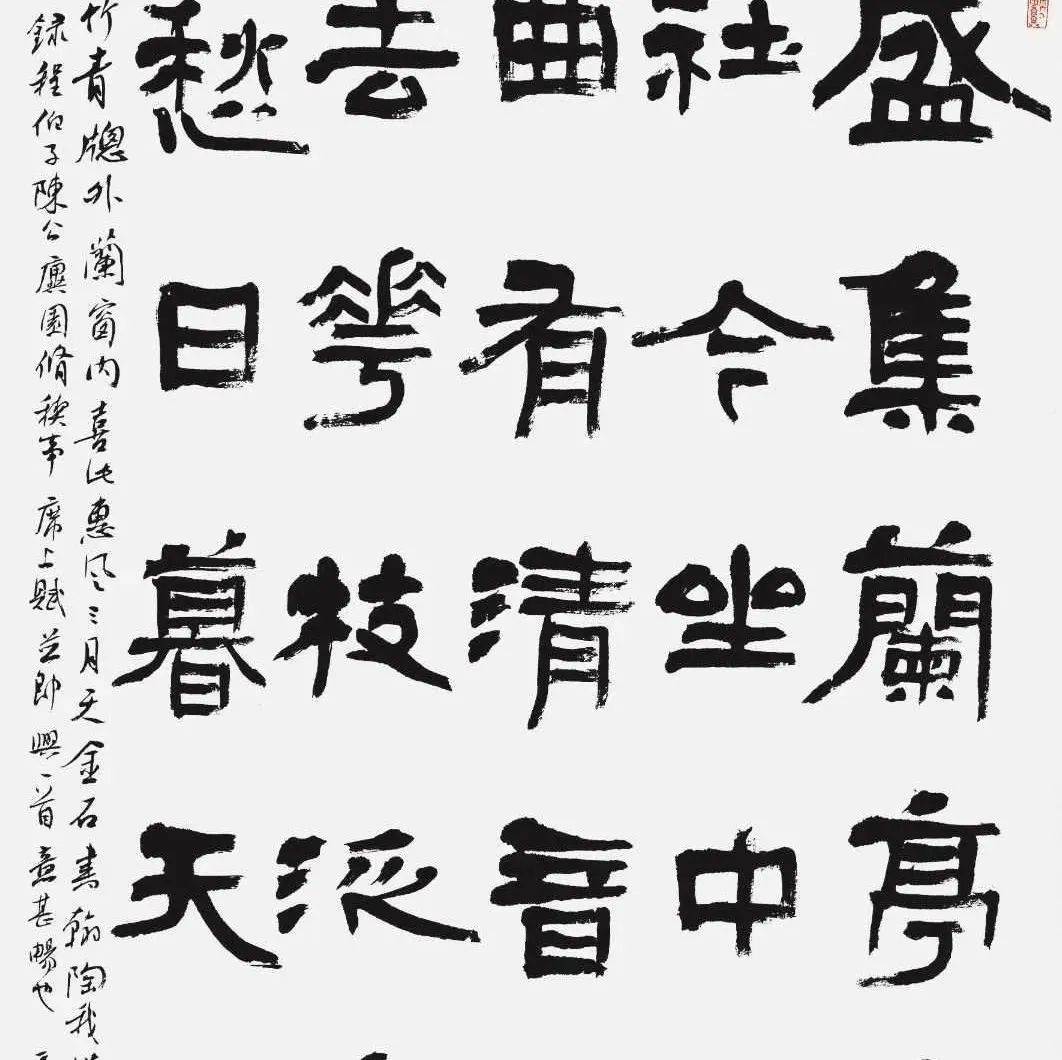 盛集蘭亭
社今坐中
曲有清音
去花枝泛
愁日暮天
竹青牕外蘭窗内喜此惠风三月天金石書翰陶我
録程伯子陳公廙園脩禊事席上賦並即興一首意甚暢也